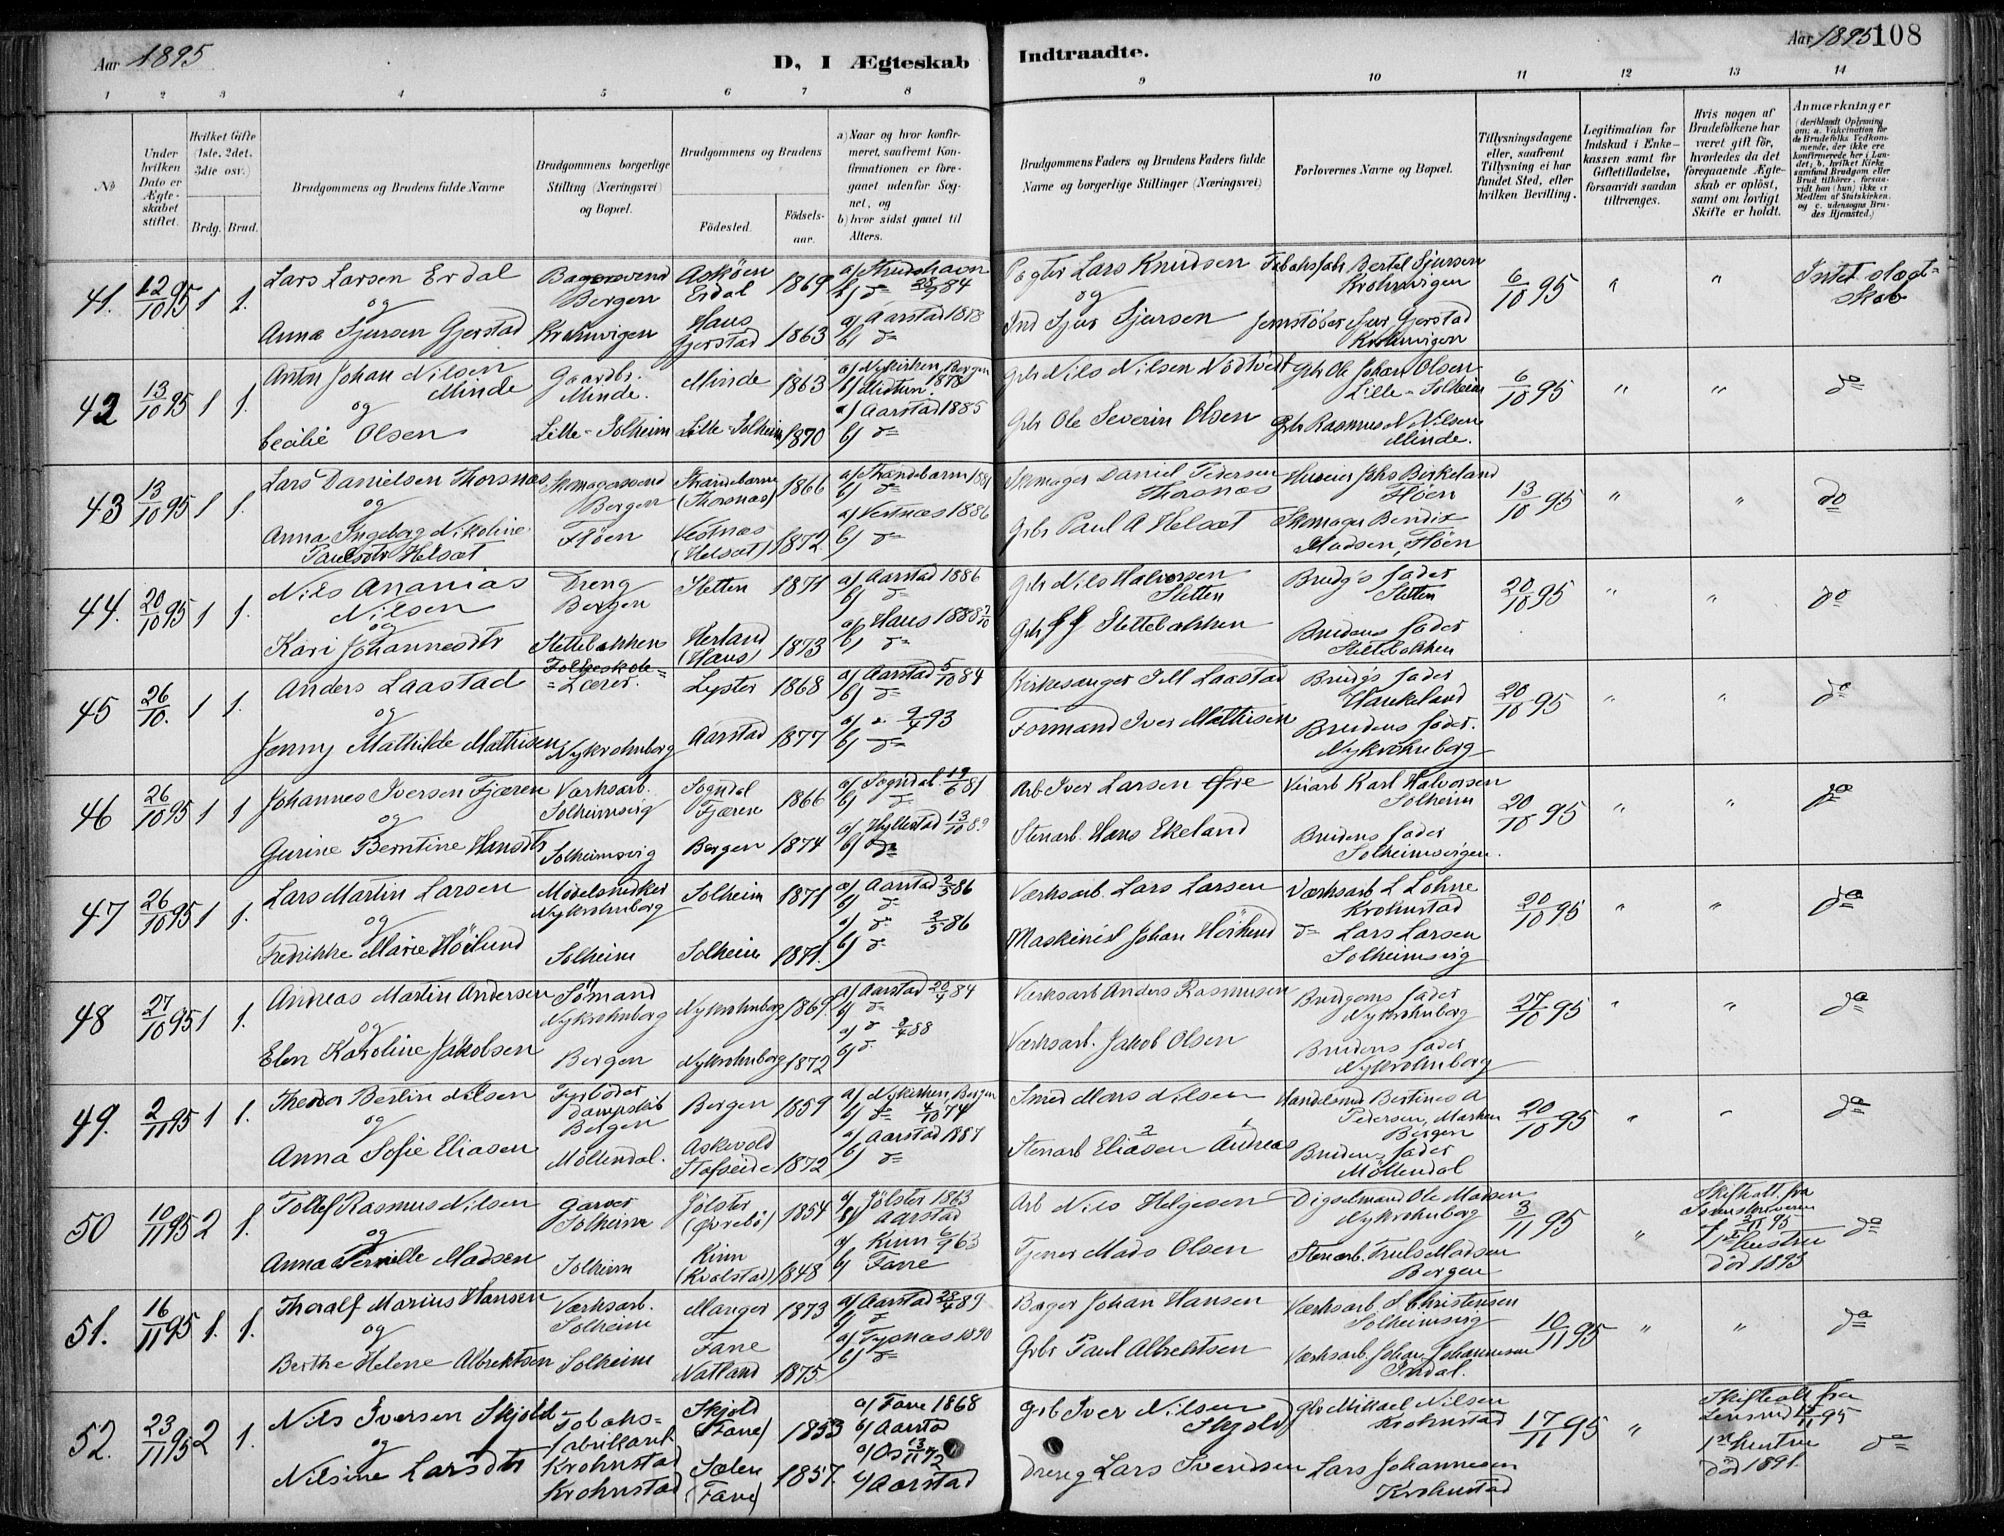 Aar 1895
D, I Ægteskab Indtraadte.
Aar 1895 108
1 2 3 4 5 6 7 8 9 10 11 12 13 14
No
Under hvilken Dato er Ægteskabet stiftet.
Hvilket Gifte (1ste, 2det, 3die osv.)
Brdg. Brud.
Brudgommens og Brudens fulde Navne
Brudgommens borgerlige Stilling (Næringsvei) og Bopæl.
Brudgommens og Brudens
Födested.
Födsels-aar.
a) Naar og hvor konfirmeret, saafremt Konfirmationen er foregaaet udenfor Sognet, og
b) hvor sidst gaaet til Alters.
Brudgommens Faders og Brudens Faders fulde Navne og borgerlige Stillinger (Næringsvei)
Forlovernes Navne og Bopæl.
Tillysningsdagene eller, saafremt Tillysning ei har fundet Sted, efter hvilken Bevilling.
Legitimation for Indskud i Enkekassen samt for Giftetilladelse, forsaavidt saadan tiltrænges.
Hvis nogen af Brudefolkene har været gift, hvorledes da det foregaaende Ægteskab er oplöst, samt om lovligt Skifte er holdt.
Anmærkninger
41. 12/10 95 1 1. Lars Larsen Erdal Bagersvend Bergen Asköen Erdal 1869 28/9 84
Pagter Lars Knudsen Bertel Sjursen Krohnvigen 6/10 95 " " Intet slægtskab
og
Anna Sjursen Gjerstad Krohnvigen Haus Gjerstad 1863 a) Aarstad 1878 b) do
Ind Sjur Sjursen Jernstöber Sjur Gjerstad Krohnvigen
42 13/10 95 1 1. Anton Johan Nilsen Minde Gaardbr. Minde. Minde 1863 a) Nykirken, Bergen 1878 b) Midtun.
Gbr Nils Nilsen Nödtvedt Gbr Ole Johan Olsen Lille-Solheim 6/10 95 " " do
og
Cecilie Olsen Lille-Solheim Lille-Solheim 1870 a) Aarstad 1885 b) do
Gbr Ole Severin Olsen Gbr Rasmus N Nilsen Minde.
43 13/10 95 1 1. Lars Danielsen Thorsnæs Skomagersvend Bergen Strandebarm (Thorsnæs) 1866 a) Strandebarm 1881 b) do
Skomager Daniel Pedersen Thorsnæs Huseier Johs Birkeland Flöen 13/10 95 " " do
og
Anna Ingeborg Nikoline Paulsdtr Helset Flöen Vestnæs (Helset) 1872 a) Vestnæs 1886 b) do
Grbr Paul A Helset Skomager Bendix Madsen, Flöen
44. 20/10 95 1 1. Nils Ananias Nilsen Dreng Bergen Sletten 1871 a) Aarstad 1886 b) do
Gbr Nils Halvorsen Sletten Brudg's fader Sletten 20/10 95 " " do
og
Kari Johannesdtr Slettebakken Herland (Haus) 1873 a) Haus 1888 2/10 b) do
Gbr Slettebakken Brudens fader Slettebakken
45 26/10. 1 1. Anders Laastad Folkeskole-Lærer. Lyster 1868 a) Aarstad 5/10 84 b) do
Kirkesanger Laastad Brudg's fader Haukeland 20/10 95 " " do
og
Jenny Mathilde Mathisen Nykrohnborg Aarstad 1877 a) " 9/4 93 b) do
Formand Iver Mathisen Brudens fader. Nykrohnborg
46 26/10 95 1 1 Johannes Iversen Fjæren Værksarb. Solheimsvig Sogndal Fjæren 1866 a) Sogndal 19/6 81 b) do
Arb Iver Larsen Øvre Veiarb Karl Halvorsen Solheim 20/10 95 " " do
og
Gurine Berntine Hansdtr Solheimsvig Bergen 1874 a) Hyllestad 13/10 89 b) do
Stenarb. Hans Ekeland Brudens fader Solheimsvigen.
47 26/10 95 1 1. Lars Martin Larsen Modelsnedker Nykrohnborg Solheim 1871 a) Aarstad 2/5 86 b) do
Værksarb. Lars Larsen Værksarb L Lohne Krohnstad 20/10 95 " " do
og
Fredrikke Marie Höilund Solheim Solheim 1871. a) do 2/5 86 b) do
Maskinist Johan Höilund do Lars Larsen Solheimsvig
48 27/10 95 1 1. Andreas Martin Andersen Sömand Nykrohnborg Nykrohnborg 1869. a) Aarstad 20/4 84 b) do
Værksarb Anders Rasmusen Brudgoms fader Nykrohnborg 27/10 95 " " do
og
Elen Karoline Jakobsen Bergen Nykrohnborg 1872 a) do 8/4 88 b) do
Værksarb. Jakob Olsen Brudens fader Nykrohnborg
49. 2/11 95 1 1. Theodor Bertin Nilsen Fyrböder dampskib Bergen Bergen 1859 a) Nykirken, Bergen b) do 4/10 74
Smed Mons Nilsen Handelsmd Bertines A Pedersen, Marken Bergen 20/10 95 " " do
og
Anna Sofie Eliasen Möllendal. Askevold Stafseide 1872 a) Aarstad 1887 b) do
2 1
Stenarb Eliasen Andreas Brudens fader Möllendal
50 10/11 95 2 1. Tollef Rasmus Nilsen Garver Solheim Jölster (Örrebö) 1854 a) Jölster 1863 b) Aarstad
Arb Nils Helgesen Digselmand Ole Madsen Nykrohnborg 3/11 95 " Skifteatt. fra Sorenskriveren 2/11 95 1ste hustru död 1893 do
og
Anna Pernille Madsen Solheim Kinn (Kvalstad) 1848 a) Kinn 6/9 63 b) Fane
Tjener Mads Olsen Stenarb. Truls Madsen Bergen
51. 16/11 95 1. 1. Thoralf Marius Hansen Værksarb. Solheim Manger 1873 a) Aarstad 28/4 89 b) do
Bager Johan Hansen Værksarb S Christensen Solheimsvig 10/11 95 " " do
og
Berthe Helene Albrektsen Solheim Fane Natland 1875 a) Tysnæs 1890 b) do
Grbr Paul Albrektsen Værksarb. Johan Johannesen Indal.
52. 23/11 95 2 1. Nils Iversen Skjold Tobaksfabrikant Krohnstad Skjold (Fane) 1853 a) Fane 1868 b) Aarstad
Grb Iver Nilsen Skjold Gbr Mikael Nilsen Krohnstad 17/11 95 " Skifteatt fra Lensmd 15/11 95 1ste hustru död 1891. do
og
Nilsine Larsdtr Krohnstad Sælen (Fane) 1857. a) Os 13/11 72 b) Aarstad
Dreng Lars Sverdsen Lars Johannesen Krohnstad